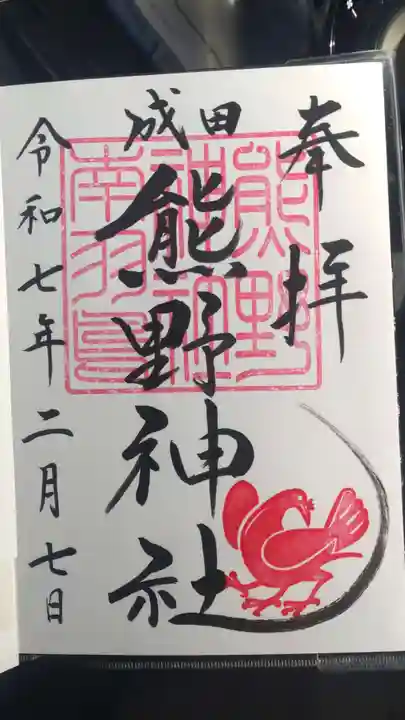 奉拝
成田
熊野神社
令和七年二月七日
熊野
神社
南羽鳥